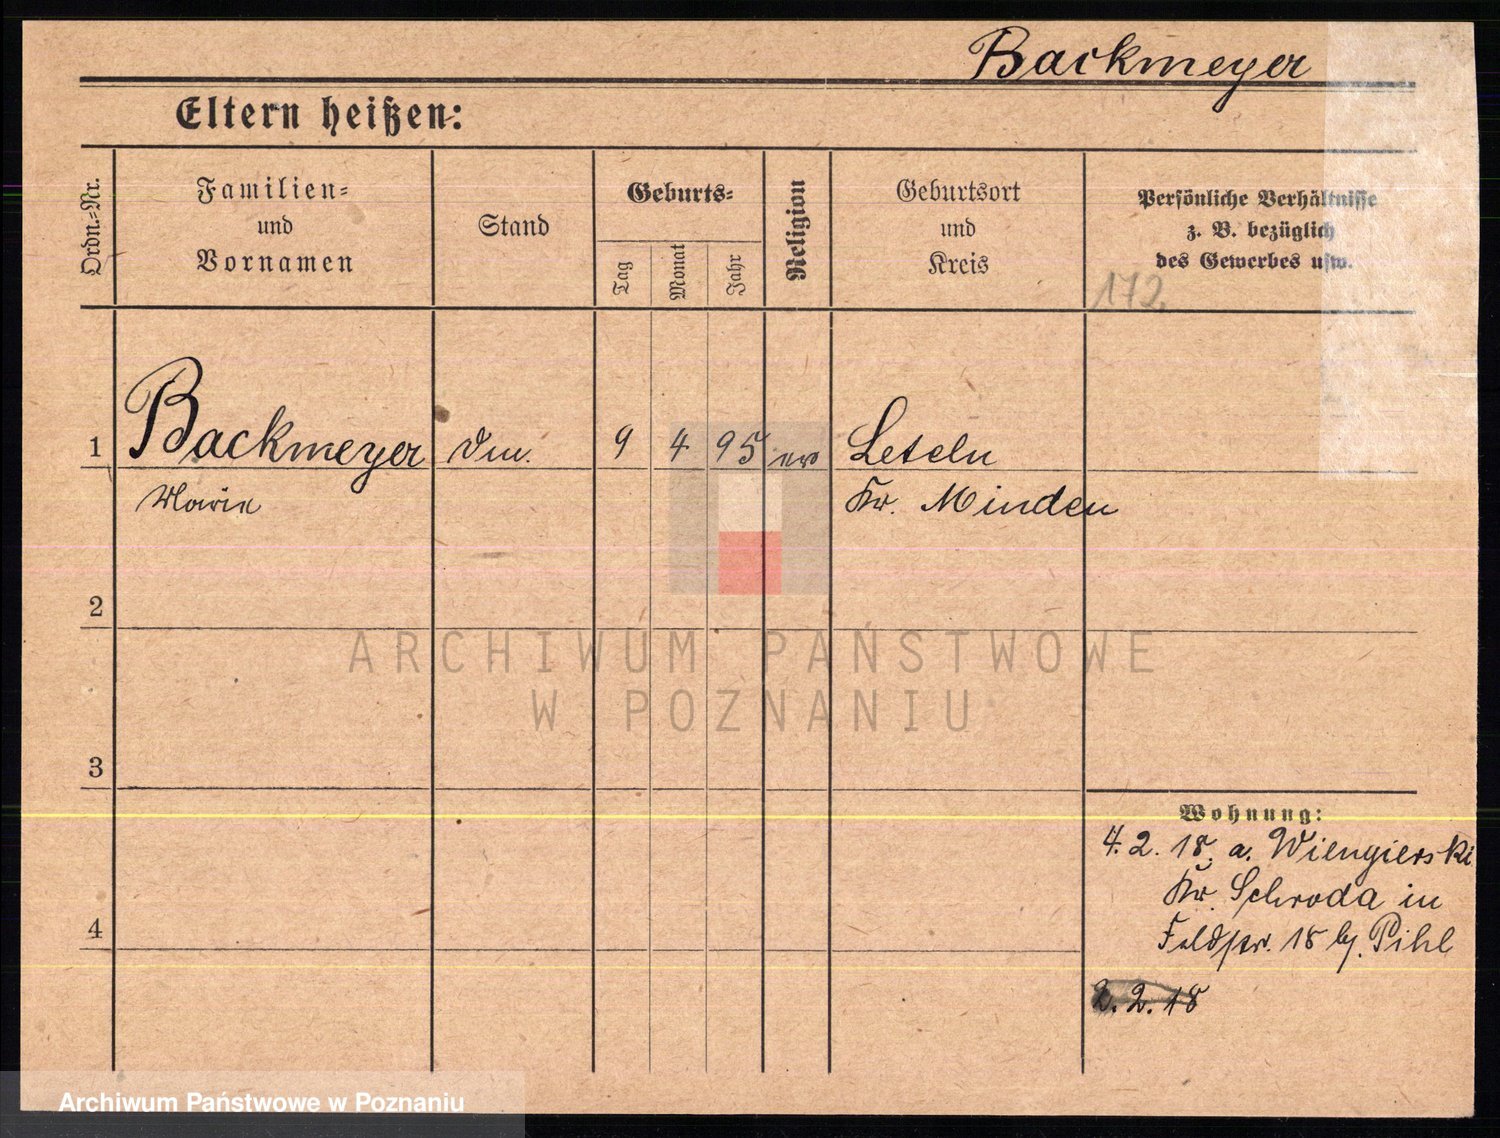 Backmeyer
Eltern heißen:
Ordn.=Nr.
Familien=
und
Vornamen
Stand
Geburts=
Tag
Monat
Jahr
Religion
Geburtsort
und
Kreis
Persönliche Verhältnisse
z. B. bezüglich
des Gewerbes usw.
172.
1 Backmeyer 9 4 95 ev Leteln
Marie Kr. Minden
2
3
4
Wohnung:
4. 2. 18. a. Wiengierski
Kr. Schroda in
Feldstr. 18 by. Pihl
2. 2. 18
ARCHIWUM PAŃSTWOWE
W POZNANIU
Archiwum Państwowe w Poznaniu